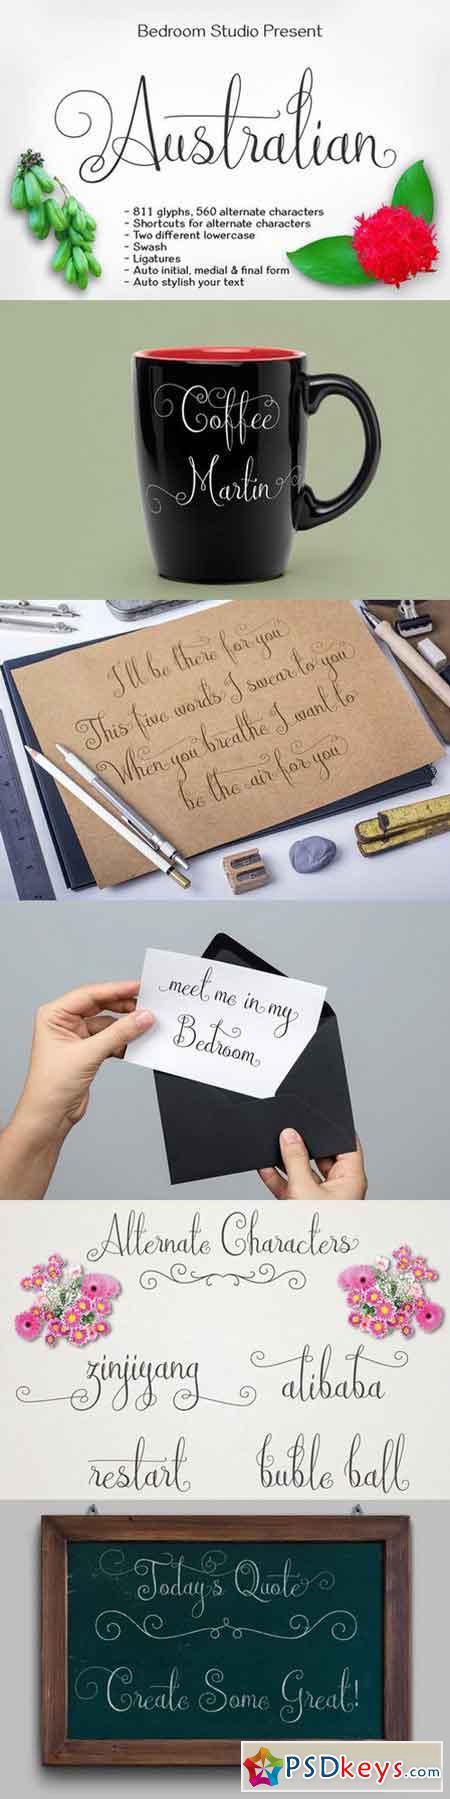 Bedroom Studio Present
Australian
- 811 glyphs, 560 alternate characters
- Shortcuts for alternate characters
- Two different lowercase
- Swash
- Ligatures
- Auto initial, medial & final form
- Auto stylish your text
Coffee
Martin
I'll be there for you
This five words I swear to you
When you breathe I want to
be the air for you
meet me in my
Bedroom
Alternate Characters
zinjiyang
alibaba
restart
buble ball
Today's Quote
Create Some Great!
PSDkeys.com